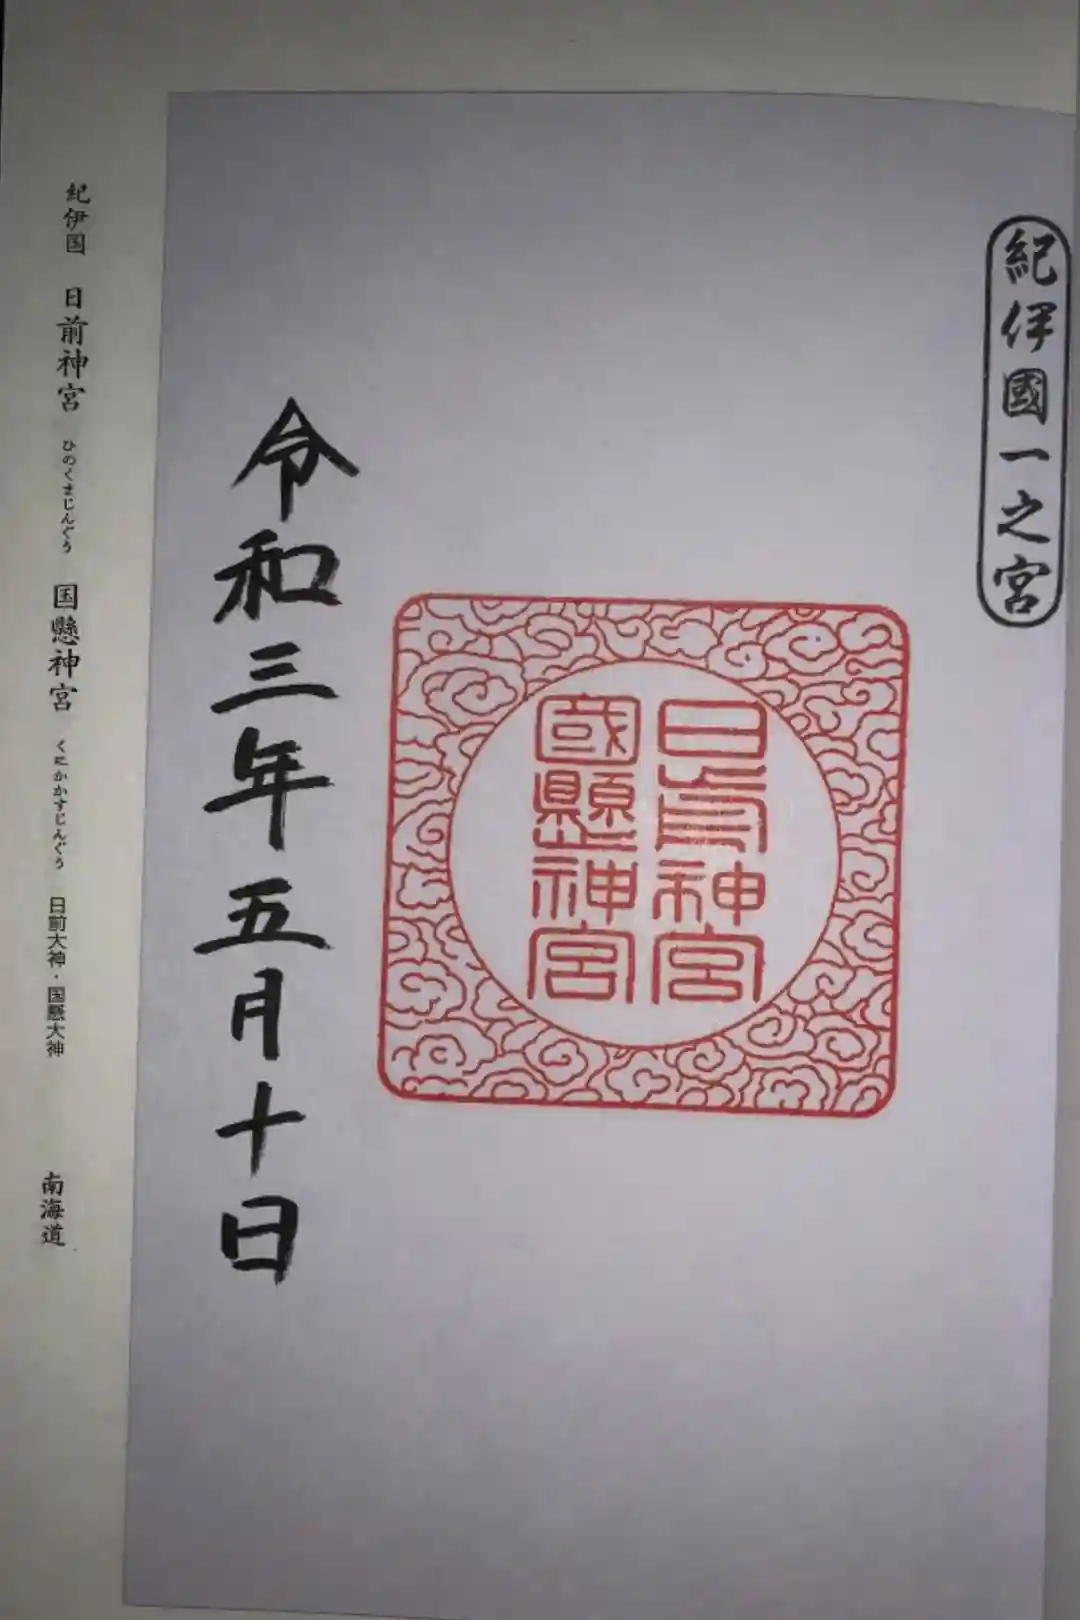 紀伊國一之宮
日前神宮
國懸神宮
令和三年五月十日
紀伊国 日前神宮 ひのくまじんぐう 国懸神宮 くにかかすじんぐう 日前大神・国懸大神 南海道